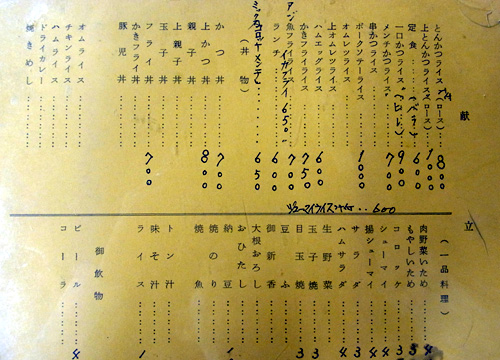 献
とんかつライス(ロース) 800
上とんかつライス(ロース) 1000
定食 600
一口かつライス(ヒレ) 900
メンチかつライス 700
串かつライス
ポークソテーライス 1000
オムレツライス
上オムレツライス
ハムエッグライス 600
かきフライライス 750
アジ魚フライライス 700
イカフライ 650
ランチ 600
ミックスコロッケメンチ 650
(丼物)
かつ丼 700
上かつ丼 800
親子丼
上親子丼
玉子丼
フライ丼 700
かきフライ丼
豚児丼
オムライス
チキンライス
ハムライス
ドライカレー
焼きめし
シューマイライスつき 600
立
(一品料理)
肉野菜いため
もやしいため
コロッケ
シューマイ
揚シューマイ
サラダ
ハムサラダ
生野菜
玉子焼
目玉焼
豆ふ
御新香
大根おろし
おひたし
納豆
焼のり
焼魚
トン汁
味そ汁
ライス
御飲物
ビール
コーラ